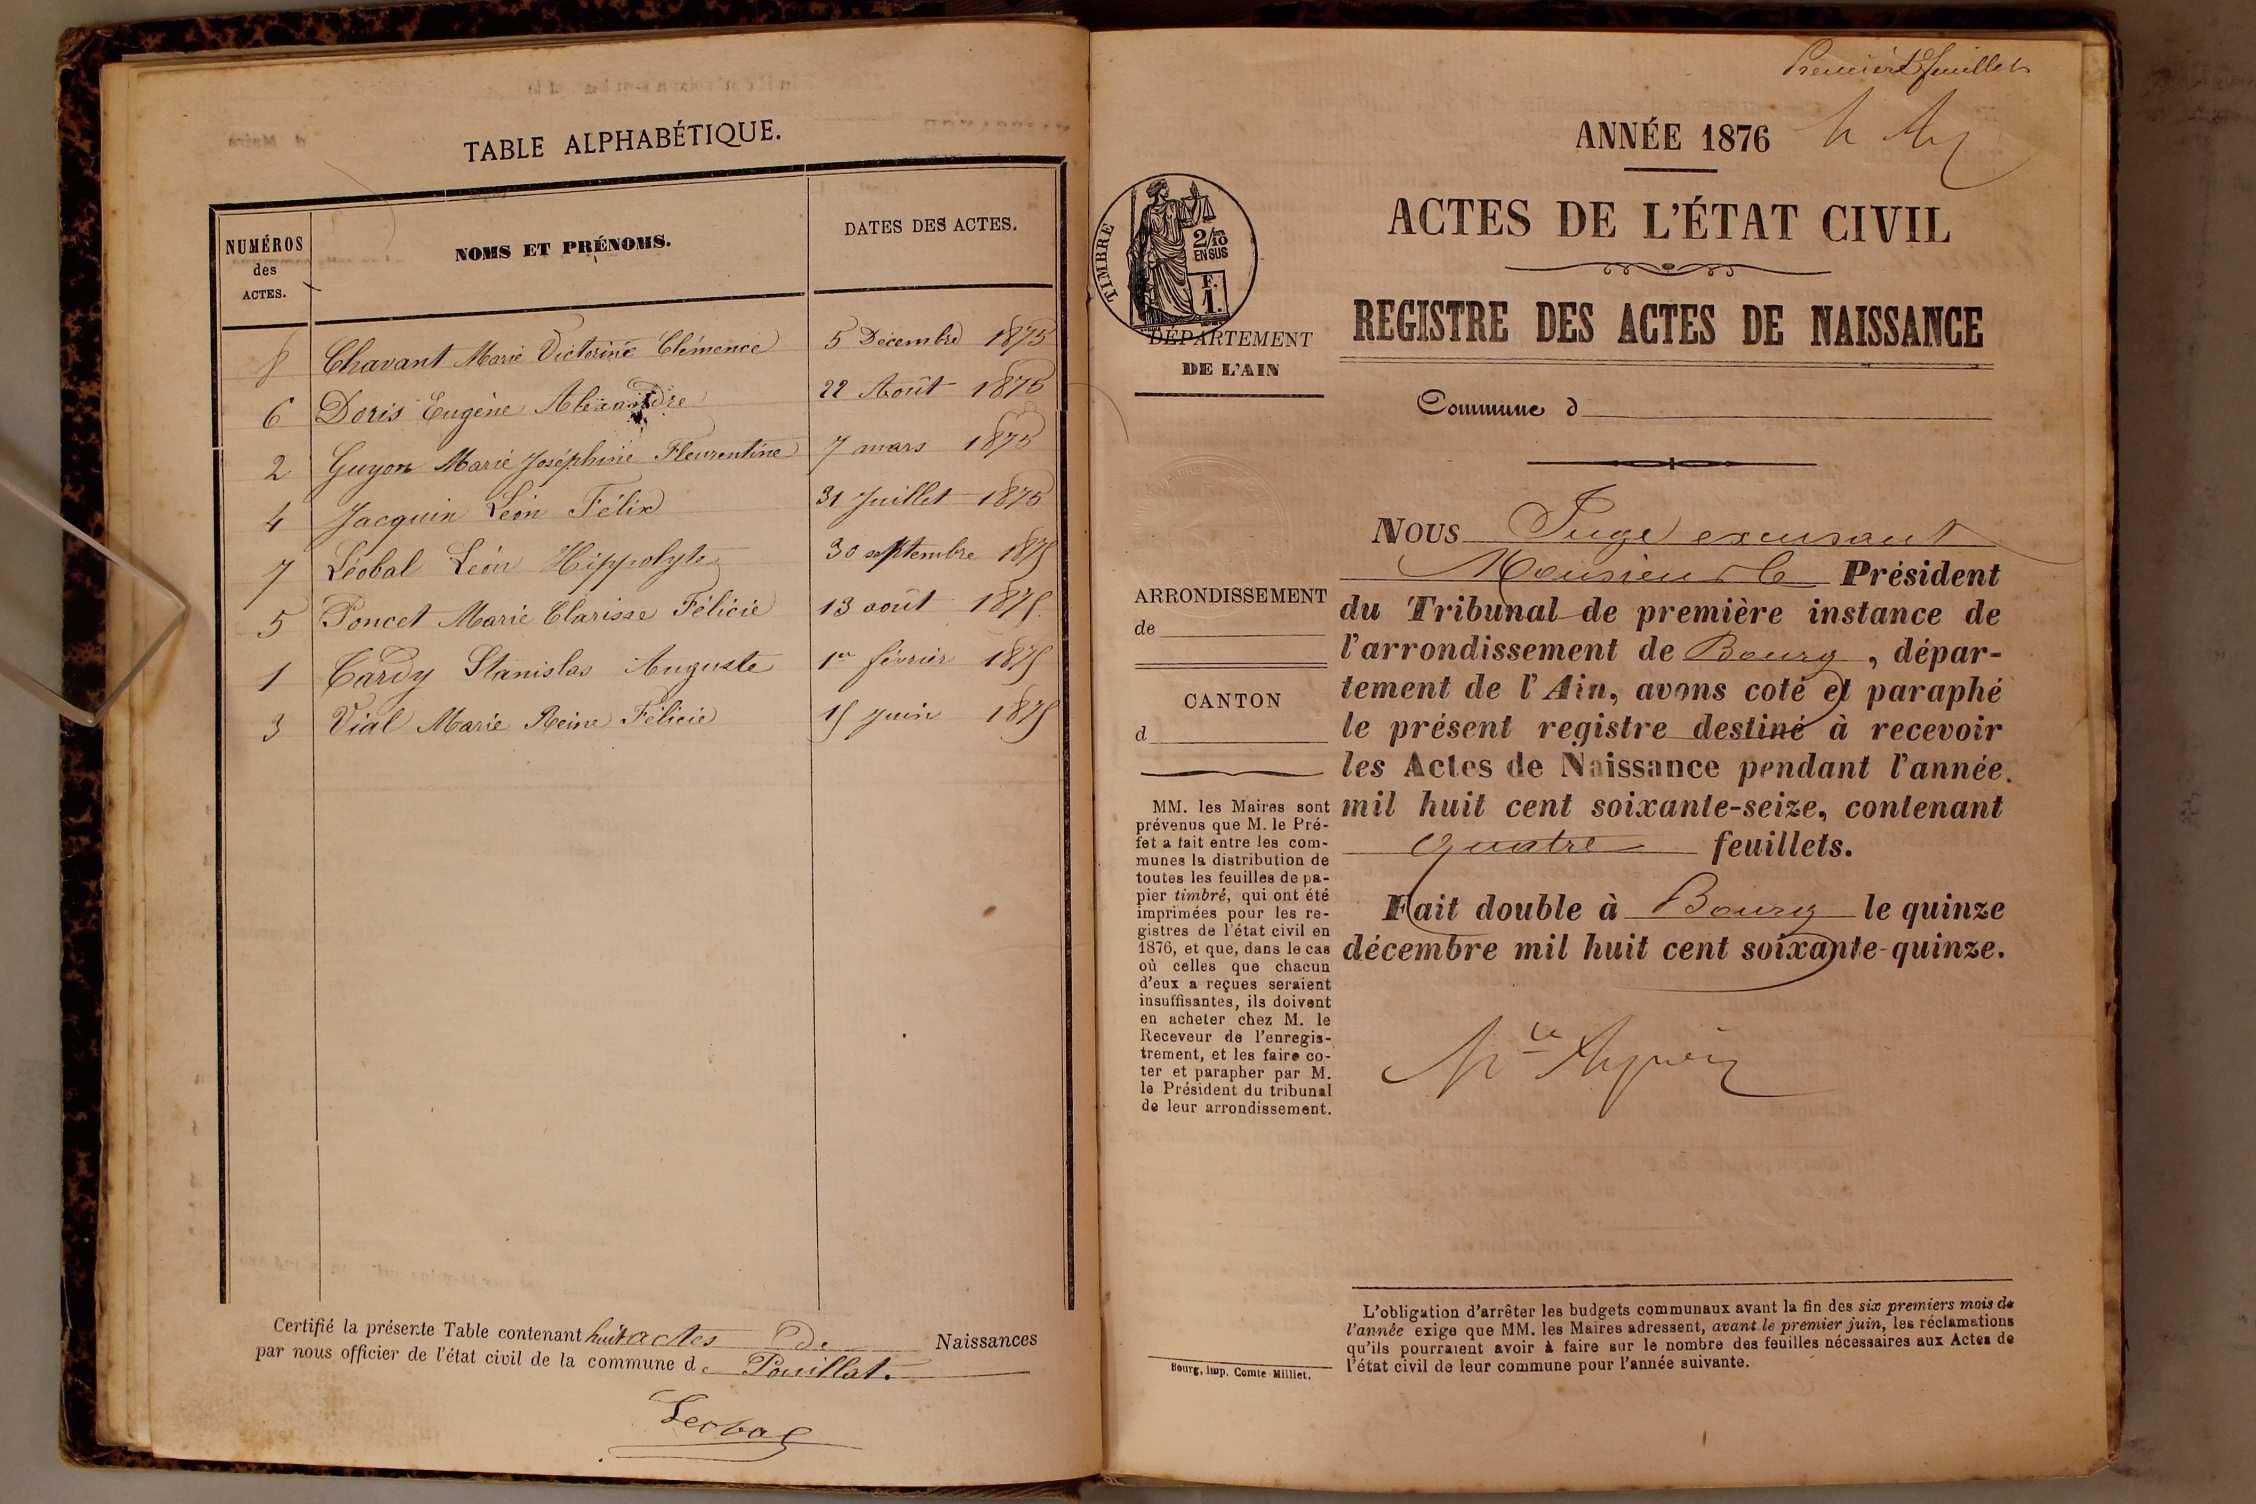 TABLE ALPHABÉTIQUE.
NUMÉROS
des
ACTES.
NOMS ET PRÉNOMS.
DATES DES ACTES.
8 Chavant Marie Victorine Clémence 5 Décembre 1875
6 Doris Eugène Alexandre 22 Août 1875
2 Guyon Marie Joséphine Fleurentine 7 mars 1875
4 Jacquin Léon Félix 31 Juillet 1875
7 Léobal Léon Hippolyte 30 septembre 1875
5 Poncet Marie Clarisse Félicie 13 août 1875.
1 Tardy Stanislas Auguste 1er février 1875
3 Vial Marie Reine Félicie 15 Juin 1875
Certifié la présente Table contenant huit actes De Naissances
par nous officier de l'état civil de la commune de Pouillat.
Leobal
Premier feuillet
ANNÉE 1876
ACTES DE L'ÉTAT CIVIL
REGISTRE DES ACTES DE NAISSANCE
TIMBRE
2/10
EN SUS
F.
1.
DÉPARTEMENT
DE L'AIN
Commune d
ARRONDISSEMENT
de
CANTON
d
MM. les Maires sont
prévenus que M. le Pré-
fet a fait entre les com-
munes la distribution de
toutes les feuilles de pa-
pier timbré, qui ont été
imprimées pour les re-
gistres de l'état civil en
1876, et que, dans le cas
où celles que chacun
d'eux a reçues seraient
insuffisantes, ils doivent
en acheter chez M. le
Receveur de l'enregis-
trement, et les faire co-
ter et parapher par M.
le Président du tribunal
de leur arrondissement.
Nous Juge excusant
Monsieur le Président
du Tribunal de première instance de
l'arrondissement de Bourg, dépar-
tement de l'Ain, avons coté et paraphé
le présent registre destiné à recevoir
les Actes de Naissance pendant l'année
mil huit cent soixante-seize, contenant
quatre feuillets.
Fait double à Bourg le quinze
décembre mil huit cent soixante-quinze.
L'obligation d'arrêter les budgets communaux avant la fin des six premiers mois de
l'année exige que MM. les Maires adressent, avant le premier juin, les réclamations
qu'ils pourraient avoir à faire sur le nombre des feuilles nécessaires aux Actes de
l'état civil de leur commune pour l'année suivante.
Bourg, imp. Comte-Milliet.